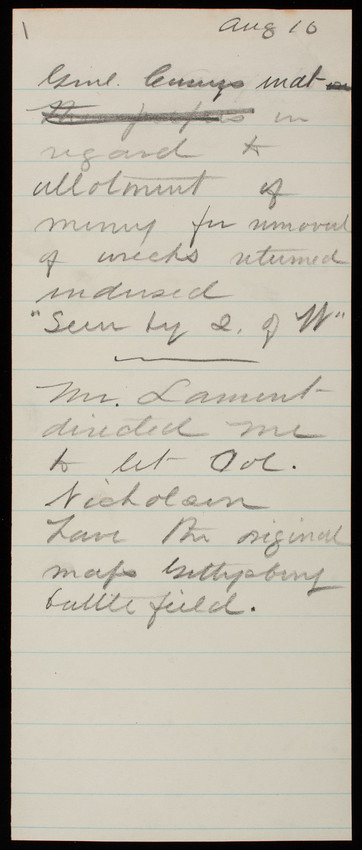 1
Aug 16
Genl. Casey's mat
in
regard to
allotment of
money for removal
of wrecks returned
indorsed
"Seen by S. of W"
Mr. Lamont
directed me
to let Col.
Nicholson
have the original
maps Gettysburg
battle field.